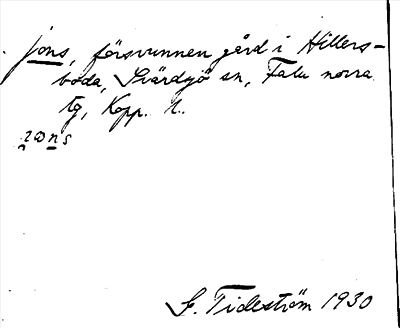 Jons, försvunnen gård i Hillers-
boda, Svärdsjö sn, Falu norra
tg, Kopp. l.
S. Tideström 1930